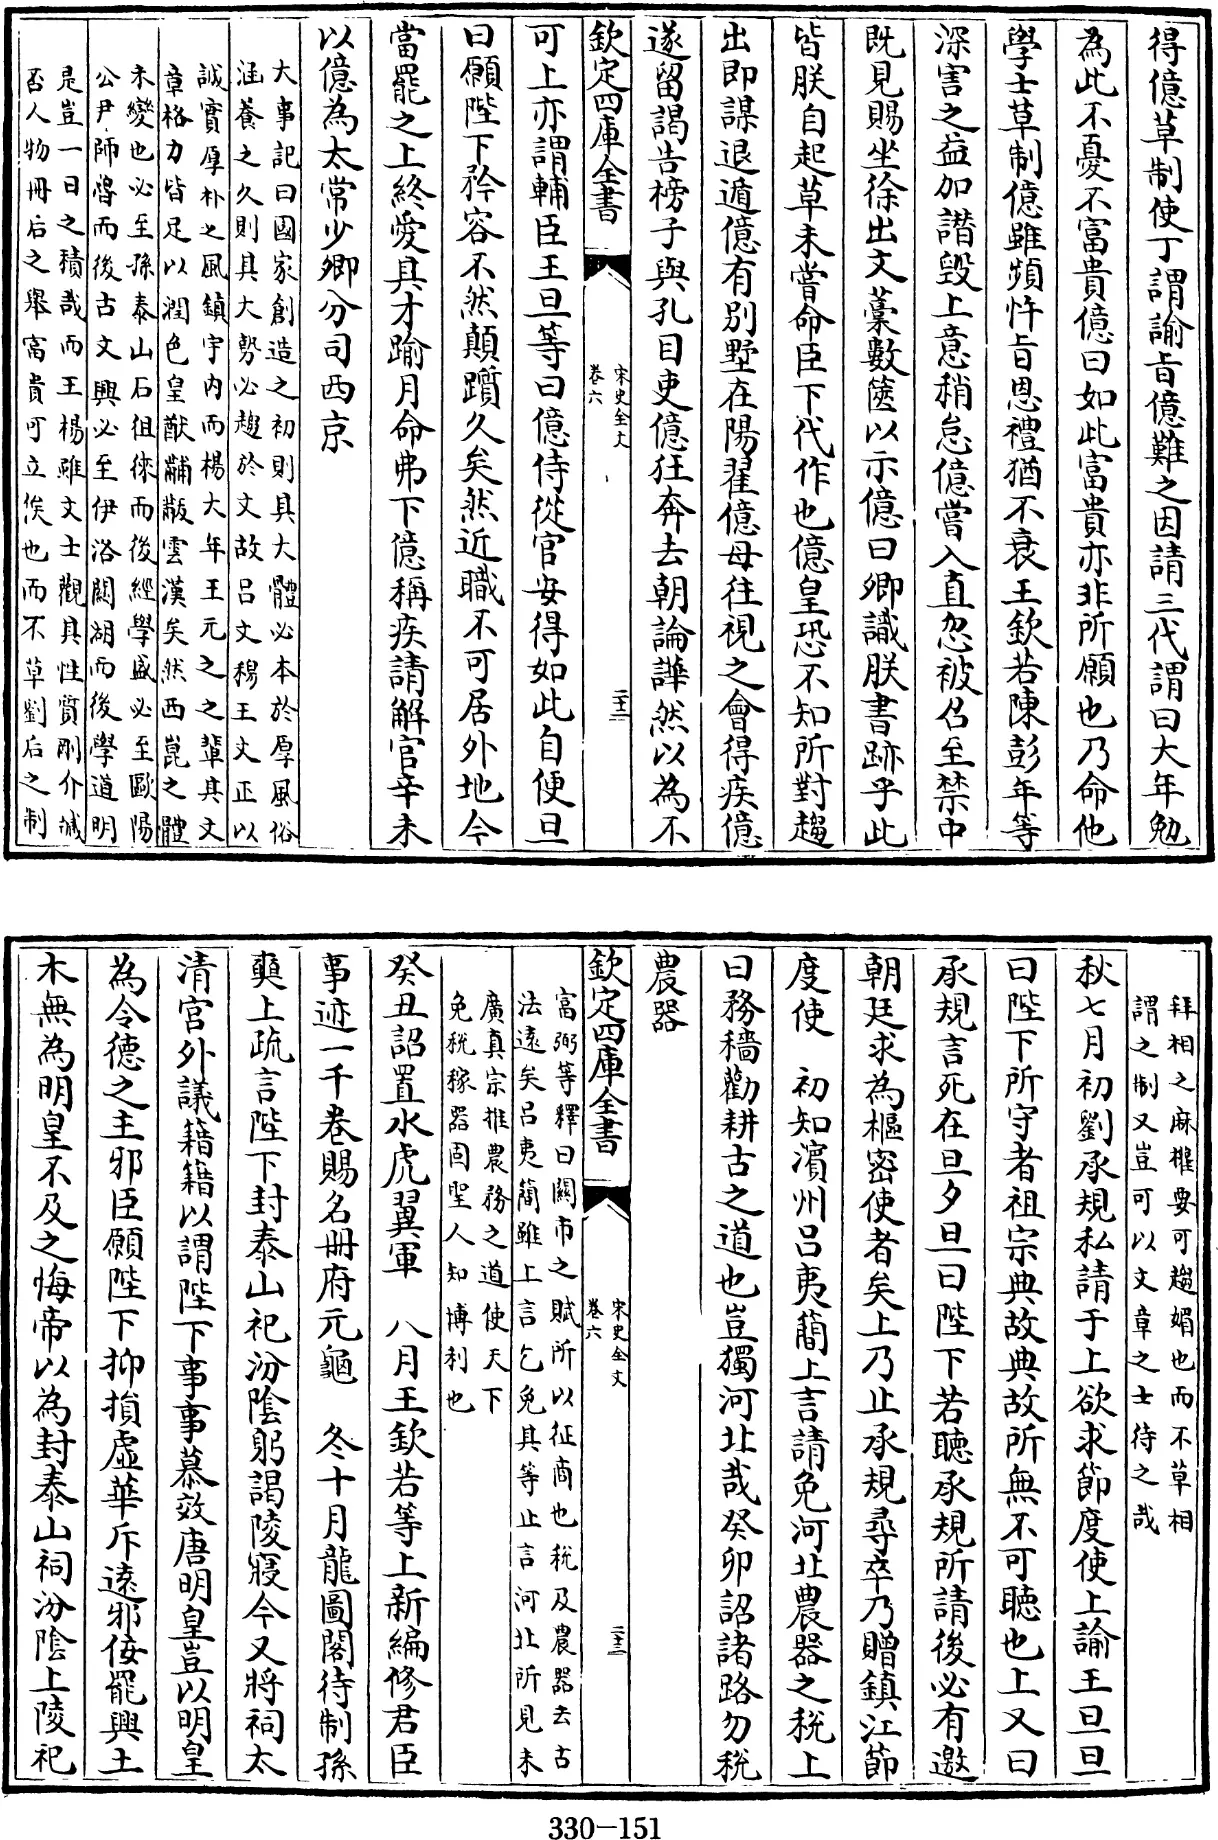 得億草制使丁謂諭旨億難之因請三代謂曰大年勉
為此不憂不富貴億曰如此富貴亦非所願也乃命他
學士草制億雖頻忤旨恩禮猶不衰王欽若陳彭年等
深害之益加譖毀上意稍怠億嘗入直忽被召至禁中
既見賜坐徐出文藁數篋以示億曰卿識朕書跡乎此
皆朕自起草未嘗命臣下代作也億皇恐不知所對趨
出即謀退遁億有別墅在陽翟億母往視之會得疾億
遂留謁告榜子與孔目吏億狂奔去朝論譁然以為不
欽定四庫全書
宋史全文
卷六
二十二
可上亦謂輔臣王旦等曰億侍從官安得如此自便旦
曰願陛下矜容不然顛躓久矣然近職不可居外地今
當罷之上終愛其才踰月命弗下億稱疾請解官辛未
以億為太常少卿分司西京
大事記曰國家創造之初則具大體必本於厚風俗
涵養之久則具大勢必趨於文故呂文穆王文正以
誠實厚朴之風鎮宇內而楊大年王元之之輩其文
章格力皆足以潤色皇猷黼黻雲漢矣然西崑之體
未變也必至孫泰山石徂徠而後經學盛必至歐陽
公尹師魯而後古文興必至伊洛關湖而後學道明
是豈一日之積哉而王楊雖文士觀其性質剛介摵
否人物冊后之舉富貴可立俟也而不草劉后之制
拜相之麻權要可趨媚也而不草相
謂之制又豈可以文章之士待之哉
秋七月初劉承規私請于上欲求節度使上諭王旦旦
曰陛下所守者祖宗典故典故所無不可聽也上又曰
承規言死在旦夕旦曰陛下若聽承規所請後必有邀
朝廷求為樞密使者矣上乃止承規尋卒乃贈鎮江節
度使　初知濱州呂夷簡上言請免河北農器之稅上
曰務穡勸耕古之道也豈獨河北哉癸卯詔諸路勿稅
農器
欽定四庫全書
宋史全文
卷六
二十三
富弼等釋曰關市之賦所以征商也稅及農器去古
法遠矣呂夷簡雖上言乞免其等止言河北所見未
廣真宗推農務之道使天下
免稅稼器固聖人知博利也
癸丑詔置水虎翼軍　八月王欽若等上新編修君臣
事迹一千卷賜名冊府元龜　冬十月龍圖閣待制孫
奭上疏言陛下封泰山祀汾陰躬謁陵寢今又將祠太
清宮外議籍籍以謂陛下事事慕效唐明皇豈以明皇
為令德之主邪臣願陛下抑損虛華斥遠邪佞罷興土
木無為明皇不及之悔帝以為封泰山祠汾陰上陵祀
330-151